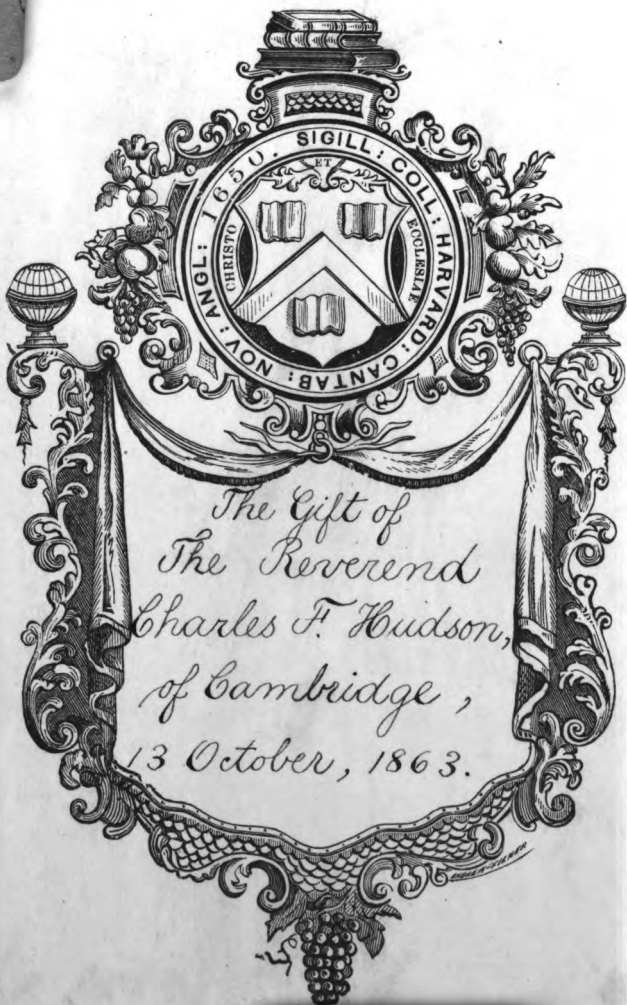 SIGILL: COLL: HARVARD: CANTAB: NOV: ANGL: 1650.
CHRISTO ET ECCLESIAE
The Gift of
The Reverend
Charles F. Hudson,
of Cambridge,
13 October, 1863.